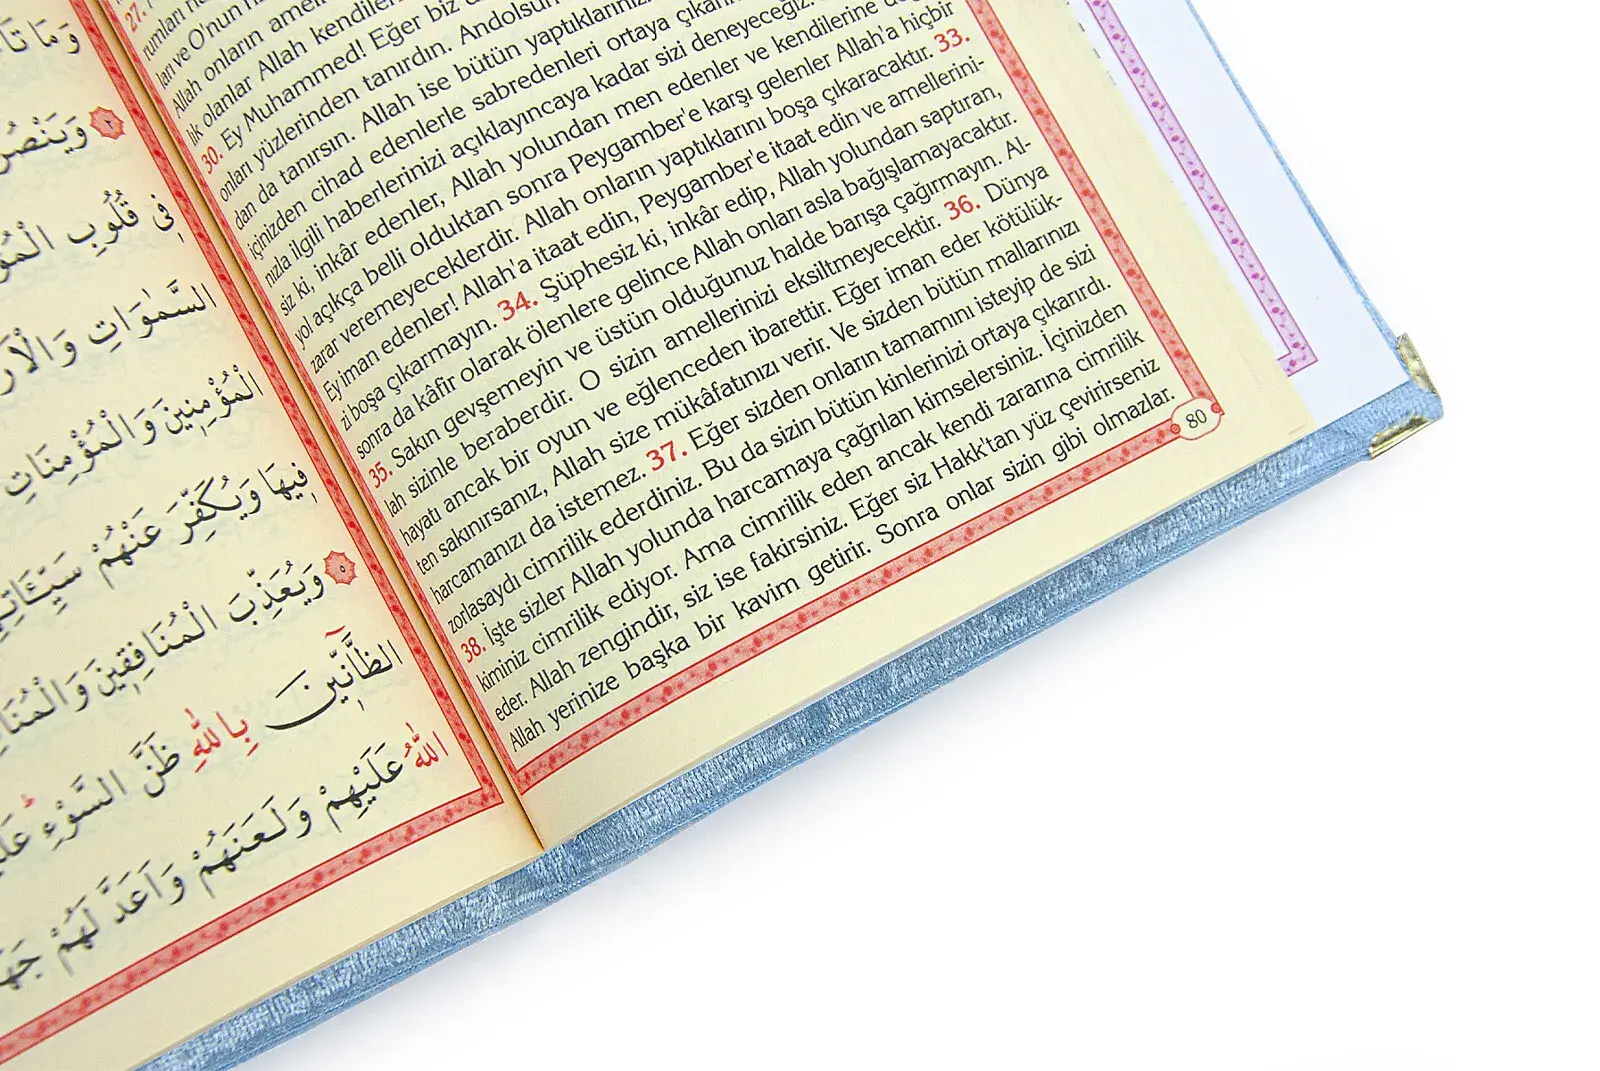 وَمَا تَأَ
وَيَنْصُرَ
فِي قُلُوبِ الْمُؤْ
السَّمٰوَاتِ وَالْاَرْ
الْمُؤْمِنِينَ وَالْمُؤْمِنَاتِ
فِيهَا وَيُكَفِّرَ عَنْهُمْ سَيِّـَٔاتِهِ
٥ وَيُعَذِّبَ الْمُنَافِقِينَ وَالْمُنَا
الظَّٓانِّينَ بِاللّٰهِ ظَنَّ السَّوْءِ عَلَيْ
اللّٰهُ عَلَيْهِمْ وَلَعَنَهُمْ وَاَعَدَّ لَهُمْ جَهَ
27.
ları ve O'nun
Allah onların
lik olanlar Allah kendileri
30. Ey Muhammed! Eğer biz
onları yüzlerinden tanırdın. Andolsun
dan da tanırsın. Allah ise bütün yaptıklarınızı
içinizden cihad edenlerle sabredenleri ortaya çıkarı
nızla ilgili haberlerinizi açıklayıncaya kadar sizi deneyeceğiz.
siz ki, inkâr edenler, Allah yolundan men edenler ve kendilerine doğ
yol açıkça belli olduktan sonra Peygamber'e karşı gelenler Allah'a hiçbir
zarar veremeyeceklerdir. Allah onların yaptıklarını boşa çıkaracaktır. 33.
Ey iman edenler! Allah'a itaat edin, Peygamber'e itaat edin ve amellerini-
zi boşa çıkarmayın. 34. Şüphesiz ki, inkâr edip, Allah yolundan saptıran,
sonra da kâfir olarak ölenlere gelince Allah onları asla bağışlamayacaktır.
35. Sakın gevşemeyin ve üstün olduğunuz halde barışa çağırmayın. Al-
lah sizinle beraberdir. O sizin amellerinizi eksiltmeyecektir. 36. Dünya
hayatı ancak bir oyun ve eğlenceden ibarettir. Eğer iman eder kötülük-
ten sakınırsanız, Allah size mükâfatınızı verir. Ve sizden bütün mallarınızı
harcamanızı da istemez. 37. Eğer sizden onların tamamını isteyip de sizi
zorlasaydı cimrilik ederdiniz. Bu da sizin bütün kinlerinizi ortaya çıkarırdı.
38. İşte sizler Allah yolunda harcamaya çağrılan kimselersiniz. İçinizden
kiminiz cimrilik ediyor. Ama cimrilik eden ancak kendi zararına cimrilik
eder. Allah zengindir, siz ise fakirsiniz. Eğer siz Hakk'tan yüz çevirirseniz
Allah yerinize başka bir kavim getirir. Sonra onlar sizin gibi olmazlar.
80